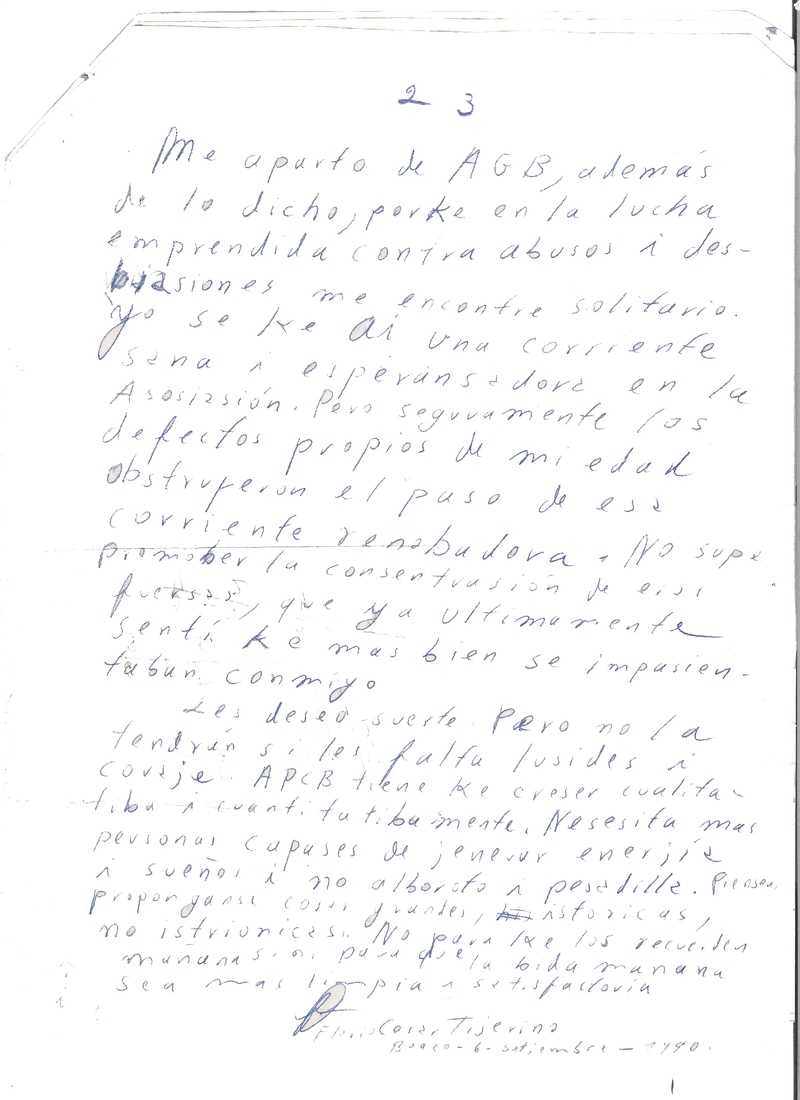 2 3
Me aparto de AGB, además
de lo dicho, porke en la lucha
emprendida contra abusos i des-
biasiones me encontre solitario.
Yo se ke ai una corriente
sana i esperansadora en la
Asosiasión. Pero seguramente los
defectos propios de mi edad
obstruyeron el paso de esa
corriente renobadora. No supe
promober la consentrasión de esas
fuersas, que ya ultimamente
sentí ke mas bien se impasien-
taban conmigo
Les deseo suerte. Pero no la
tendrán si les falta lusides i
coraje. APCB tiene ke creser cualita-
tiba i cuantitatibamente. Nesesita mas
personas capases de jenerar enerjía
i sueños i no alboroto i pesadilla. Piensen,
proponganse cosas grandes, istoricas,
no istrionicas. No para ke los recuerden
mañana sino para que la bida mañana
sea mas limpia i satisfactoria
Cesar Tijerino
Boaco-6-setiembre-1990.